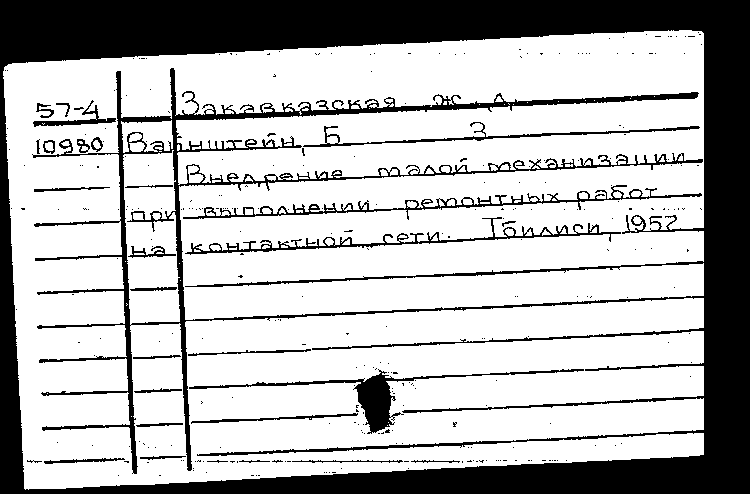 57-4 Закавказская ж. д.
10980 Вайнштейн, Б З
Внедрение малой механизации
при выполнении ремонтных работ
на контактной сети. Тбилиси, 1957